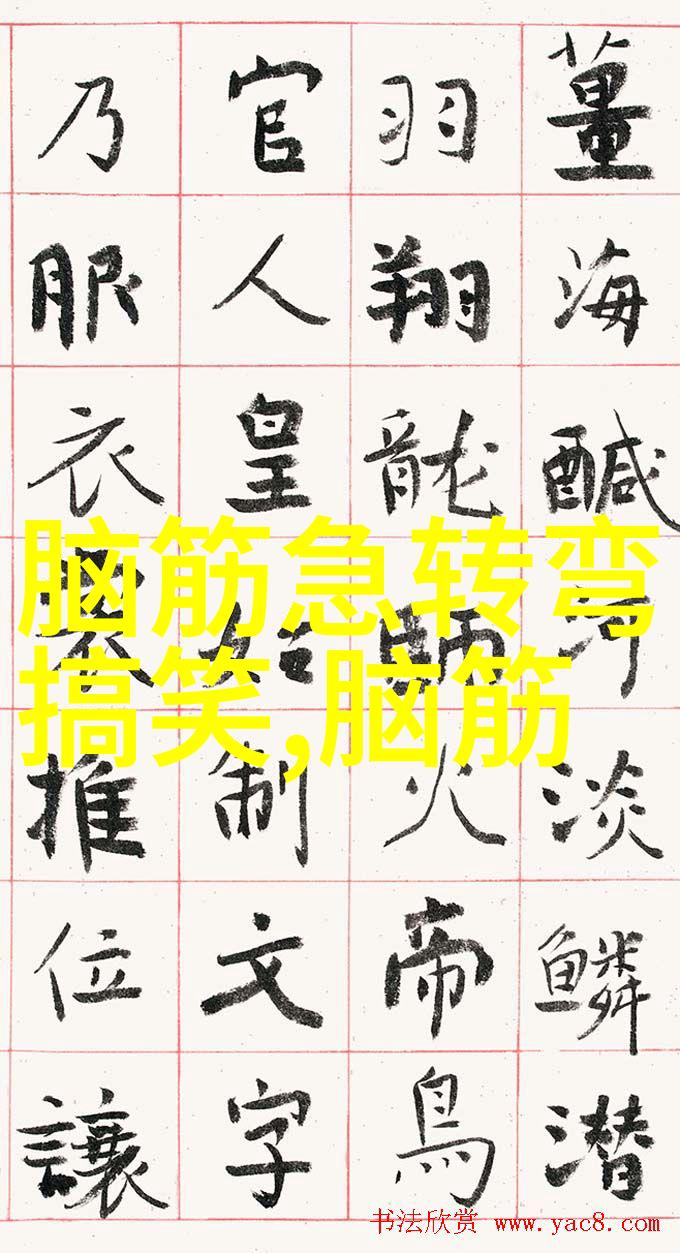 薑海鹹河淡鱗潛
羽翔龍師火帝鳥
官人皇始制文字
乃服衣裳推位讓
脑筋急转弯
搞笑,脑筋
书法欣赏 www.yac8.com